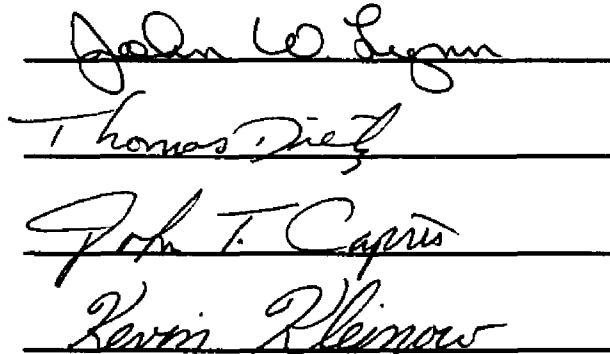 John W. Lynn
Thomas Dietz
John T. Caprio
Kevin Kleinow